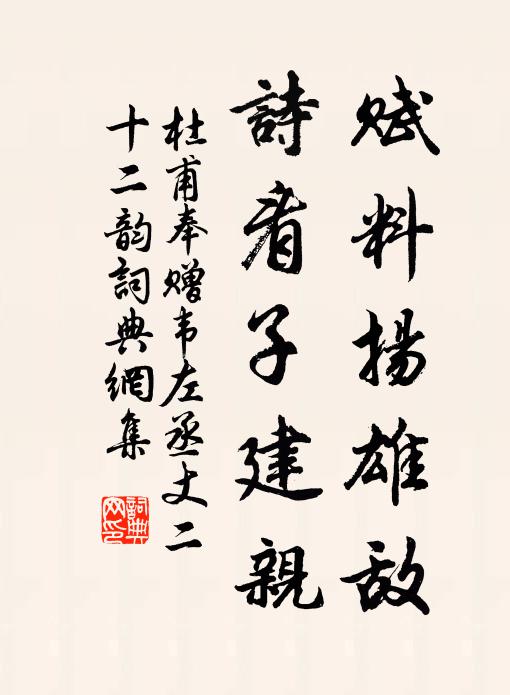 赋料揚雄敌
詩看子建親
杜甫奉赠韦左丞丈二
十二韵詞典網集
詞典
网印